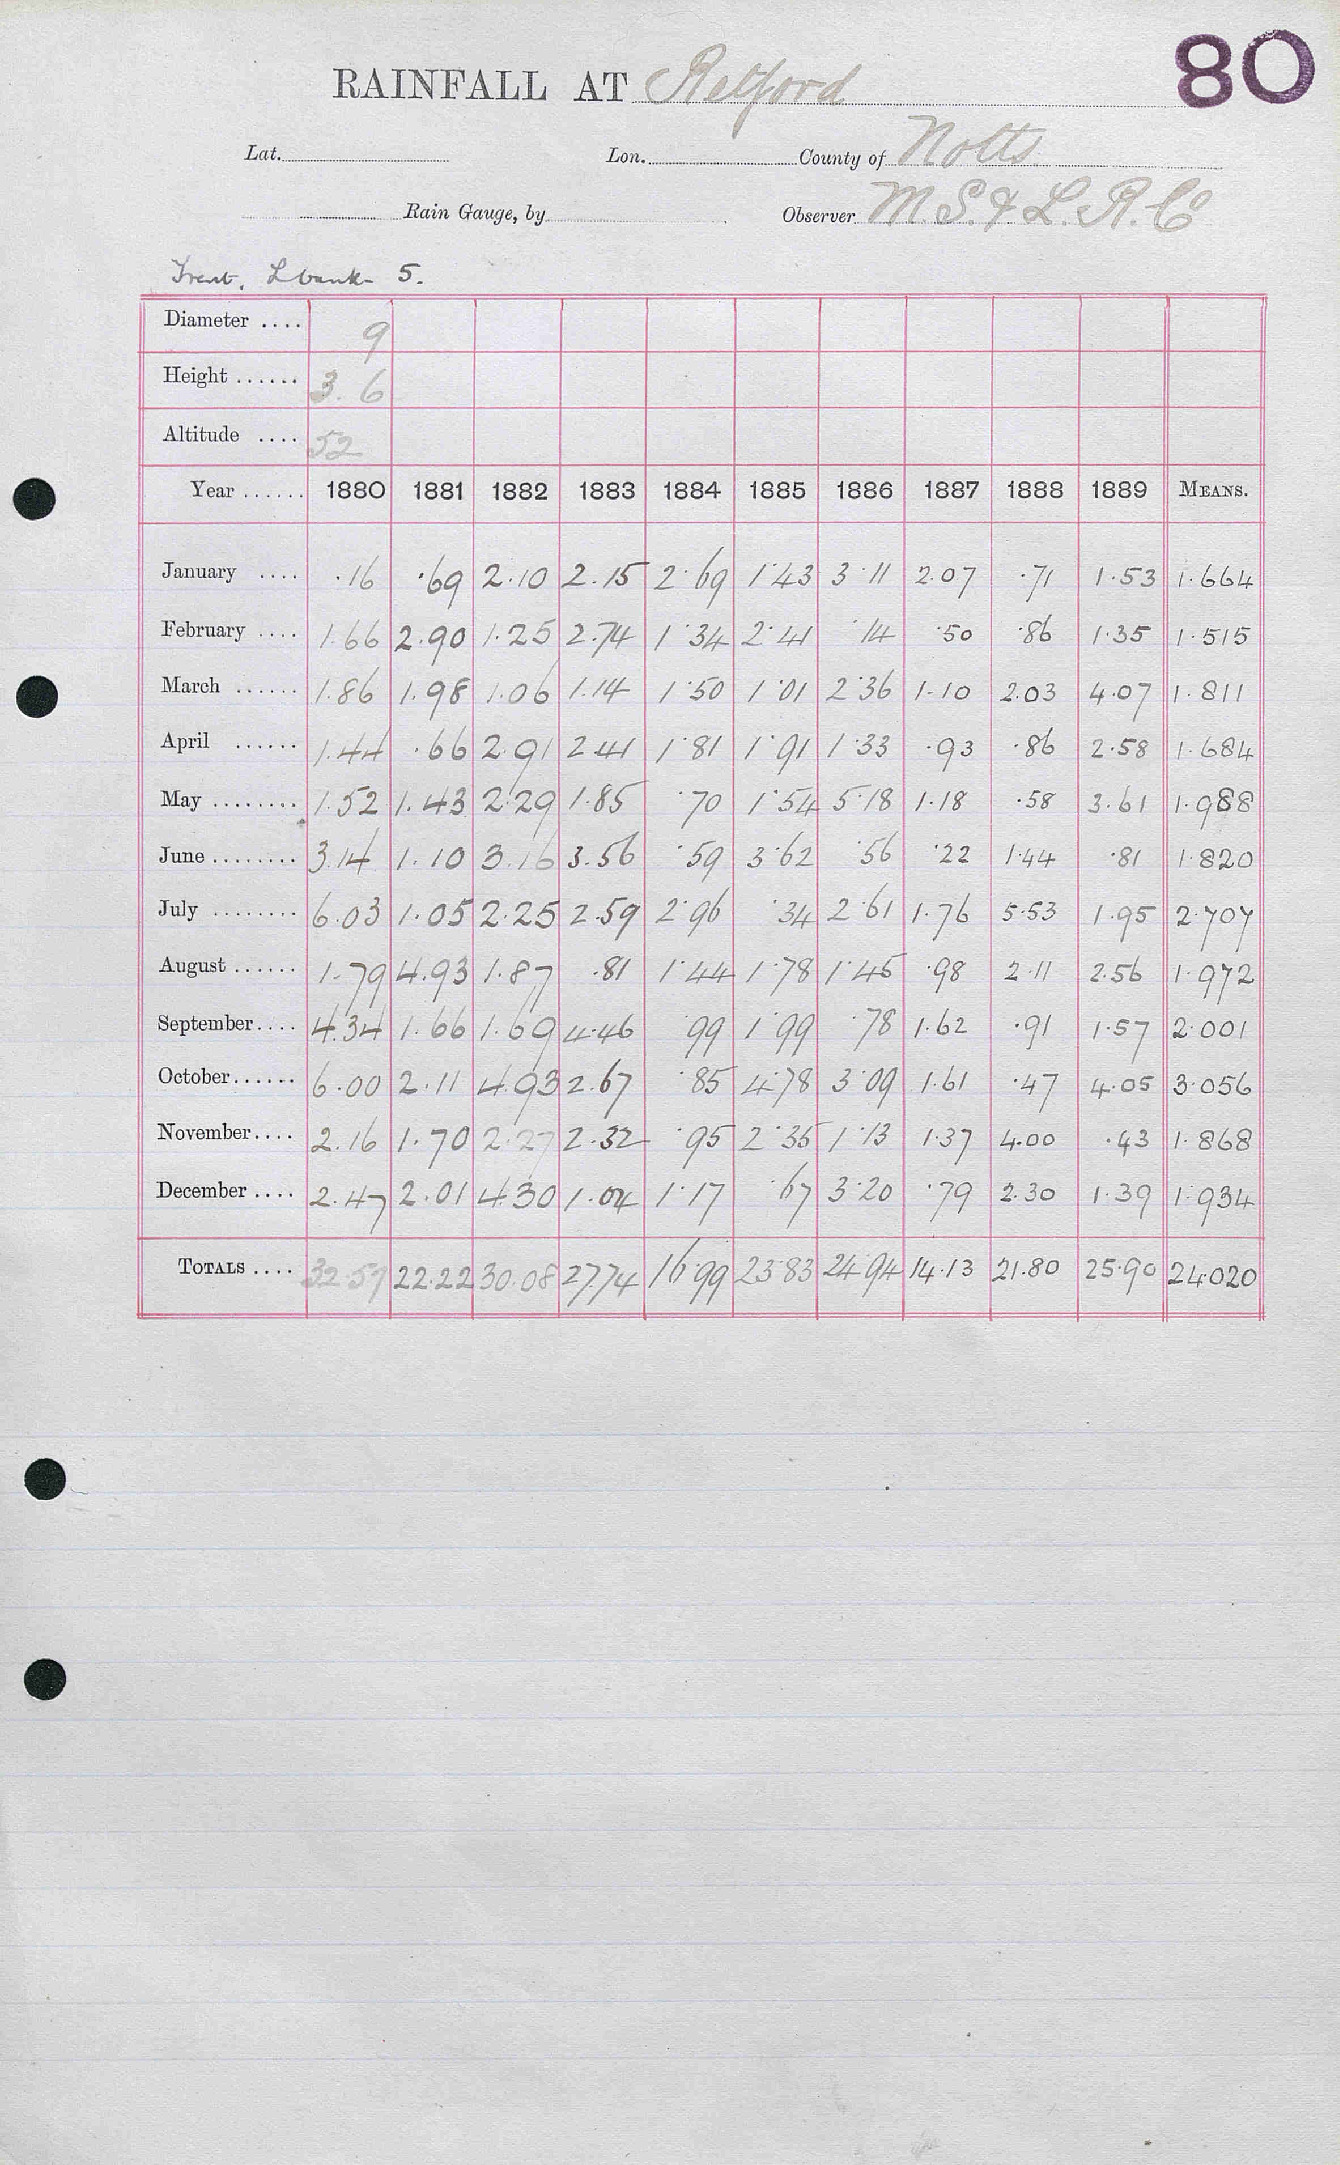 80
RAINFALL AT Retford
Lat. Lon. County of Notts
Rain Gauge, by Observer M. S. & L. R. Co
Trent, L bank 5.
Diameter .... 9
Height ...... 3. 6
Altitude .... 52
Year ...... 1880 1881 1882 1883 1884 1885 1886 1887 1888 1889 MEANS.
January .... .16 .69 2.10 2.15 2.69 1.43 3.11 2.07 .71 1.53 1.664
February .... 1.66 2.90 1.25 2.74 1.34 2.41 .14 .50 .86 1.35 1.515
March ...... 1.86 1.98 1.06 1.14 1.50 1.01 2.36 1.10 2.03 4.07 1.811
April ...... 1.44 .66 2.91 2.41 1.81 1.91 1.33 .93 .86 2.58 1.684
May ........ 1.52 1.43 2.29 1.85 .70 1.54 5.18 1.18 .58 3.61 1.988
June ........ 3.14 1.10 3.16 3.56 .59 3.62 .56 .22 1.44 .81 1.820
July ........ 6.03 1.05 2.25 2.59 2.96 .34 2.61 1.76 5.53 1.95 2.707
August ...... 1.79 4.93 1.87 .81 1.44 1.78 1.45 .98 2.11 2.56 1.972
September .... 4.34 1.66 1.69 4.46 .99 1.99 .78 1.62 .91 1.57 2.001
October ...... 6.00 2.11 4.93 2.67 .85 4.78 3.09 1.61 .47 4.05 3.056
November .... 2.16 1.70 2.27 2.32 .95 2.35 1.13 1.37 4.00 .43 1.868
December .... 2.47 2.01 4.30 1.04 1.17 .67 3.20 .79 2.30 1.39 1.934
TOTALS .... 32.57 22.22 30.08 27.74 16.99 23.83 24.94 14.13 21.80 25.90 24.020